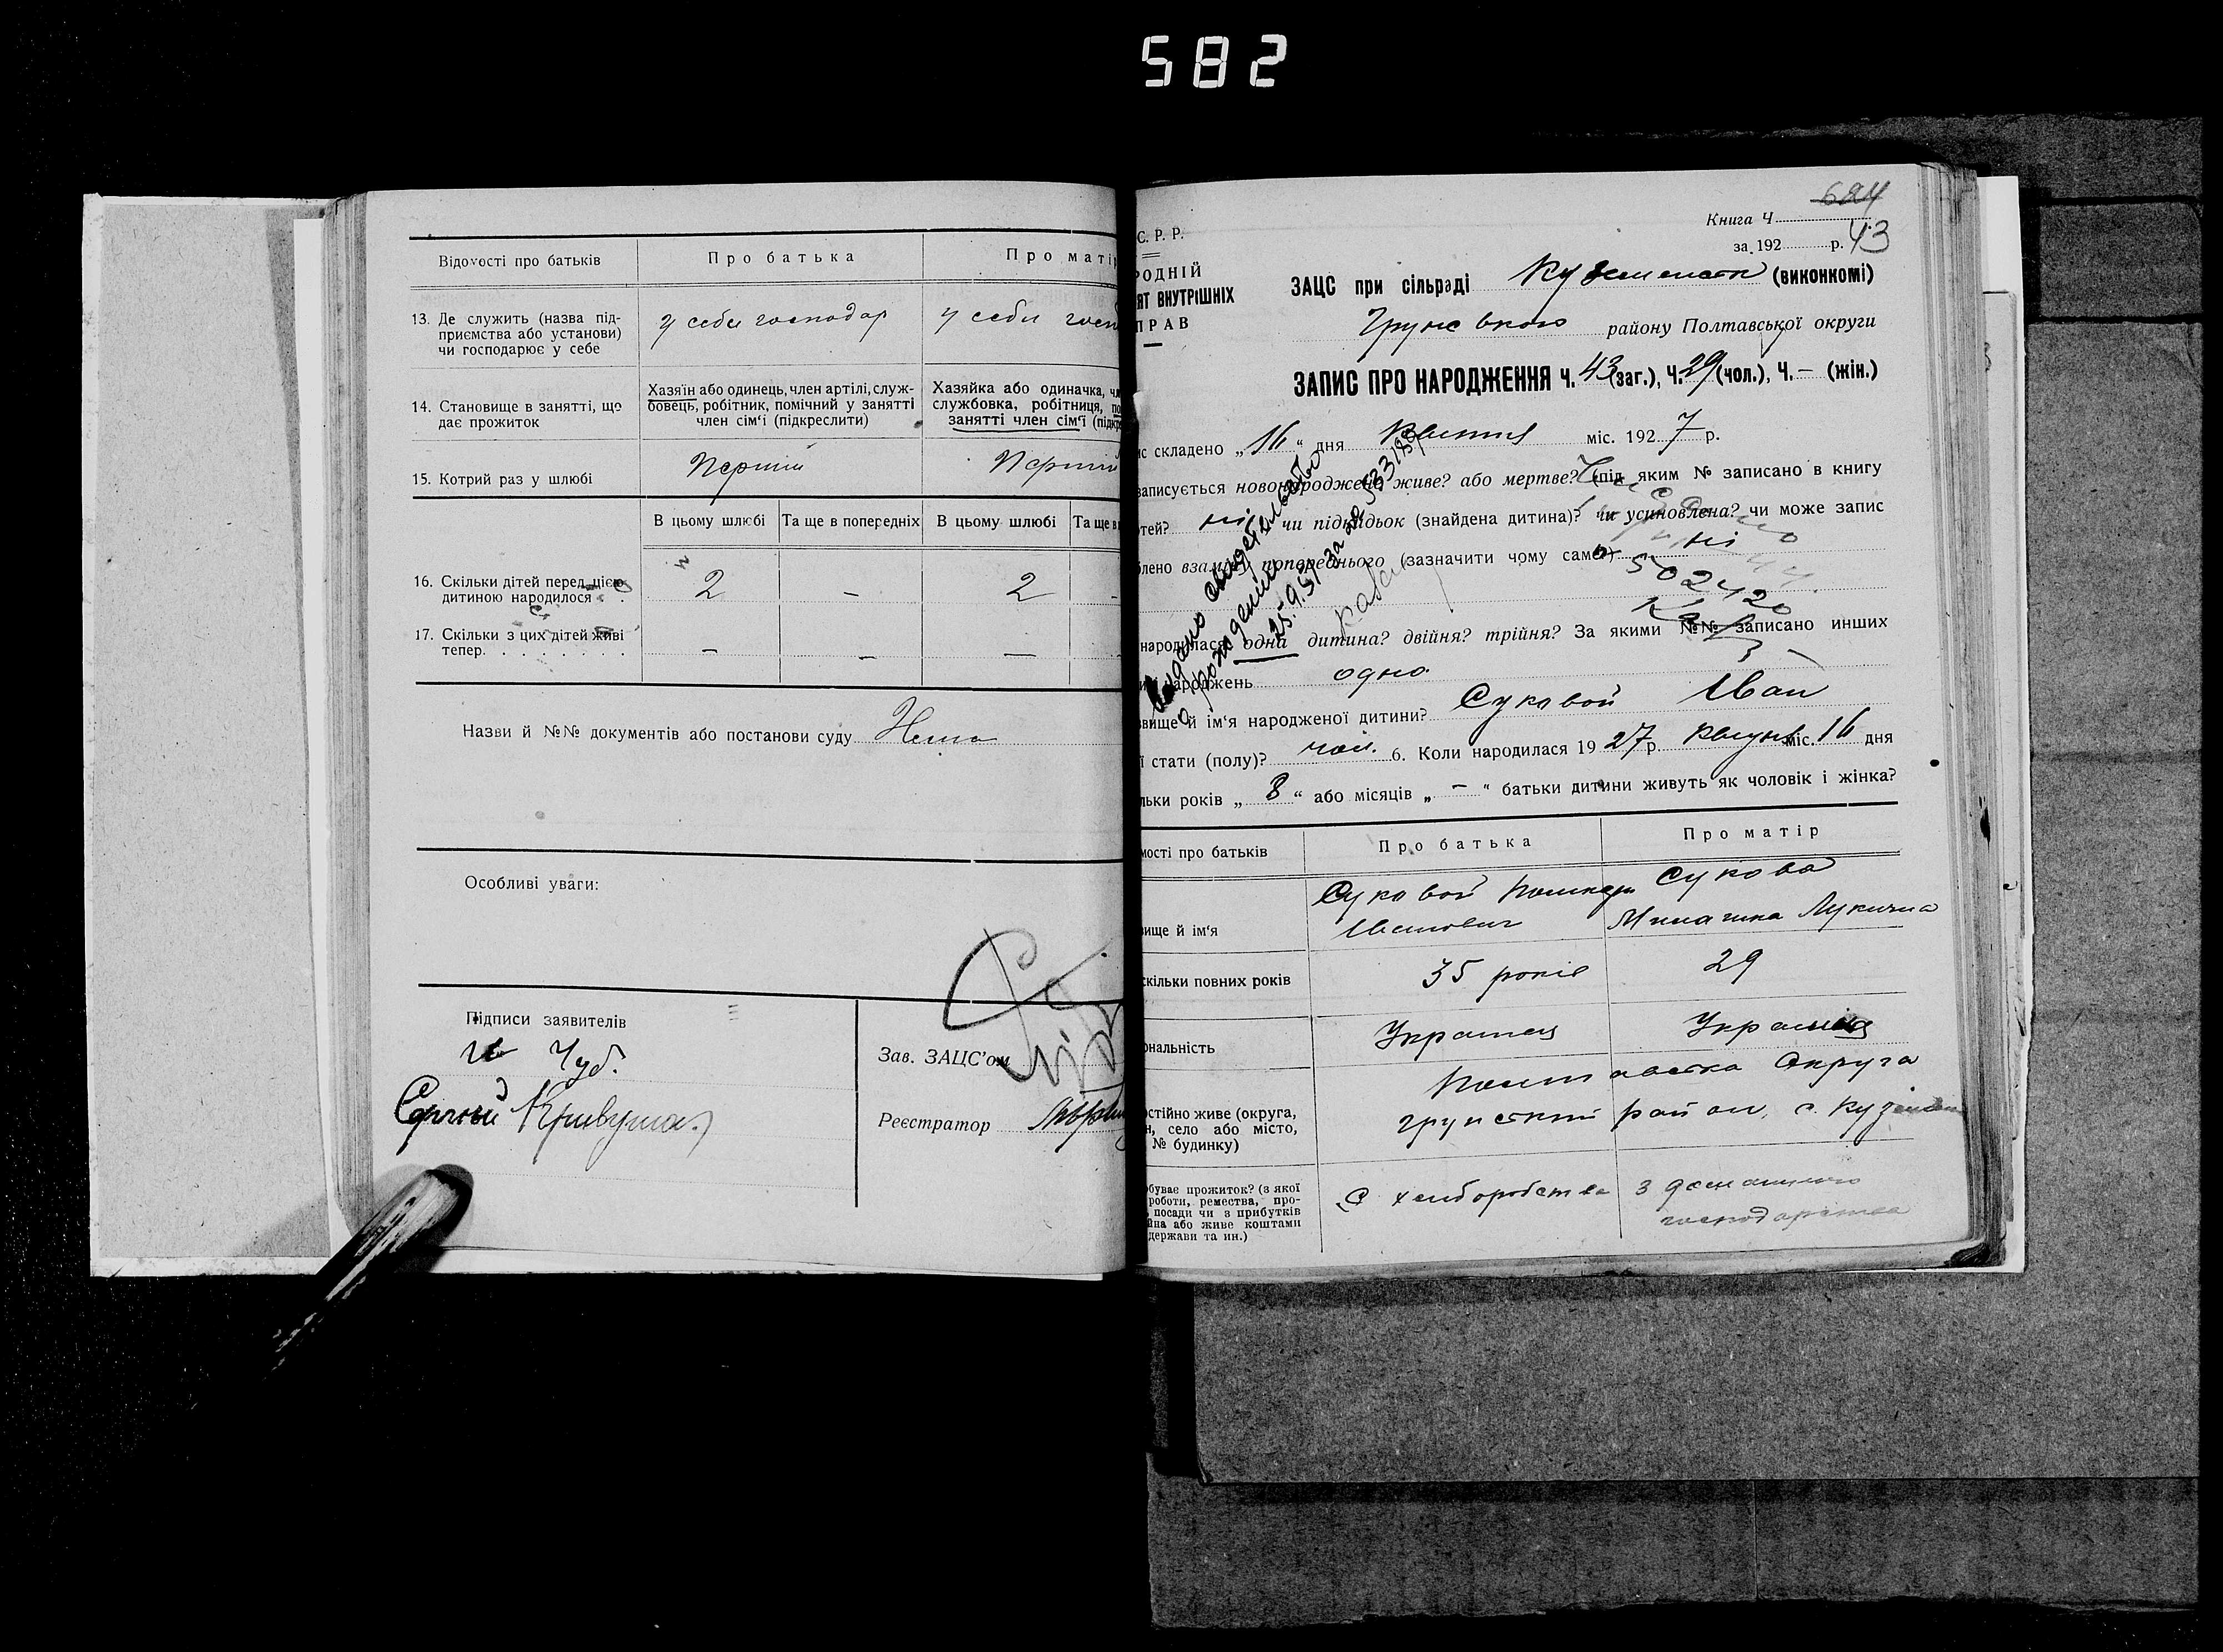 582
Відомості про батьків
Про батька
Про матір
13. Де служить (назва під-
приємства або установи)
чи господарює у себе
у себе господар
у себе госп
14. Становище в занятті, що
дає прожиток
Хазяїн або одинець, член артілі, служ-
бовець, робітник, помічний у занятті
член сім'ї (підкреслити)
Хазяйка або одиначка, чл
службовка, робітниця, по
занятті член сім'ї (підкр
15. Котрий раз у шлюбі
Перший
Перший
В цьому шлюбі
Та ще в попередніх
В цьому шлюбі
Та ще в
16. Скільки дітей перед цією
дитиною народилося . .
2
-
2
-
17. Скільки з цих дітей живі
тепер. . . . . . . .
-
-
-
-
Назви й №№ документів або постанови суду Нема
Особливі уваги:
Підписи заявителів
Чуб.
Сергий Кривуша
Зав. ЗАЦС'ом
Реєстратор
624
Книга Ч.
43
за 192 р.
С. Р. Р.
РОДНІЙ
ЯТ ВНУТРІШНІХ
ПРАВ
ЗАЦС при сільраді (виконкомі)
Грунського району Полтавської округи
ЗАПИС ПРО НАРОДЖЕННЯ Ч. 43 (заг.), Ч. 29 (чол.), Ч. - (жін.)
ис складено „16" дня квітня міс. 1927 р.
записується новонароджене живе? або мертве? (під яким № записано в книгу
ртей? ні чи підкидьок (знайдена дитина)? чи усиновлена? чи може запис
блено взамін попереднього (зазначити чому саме) ні
502420
Видано свидетельство
о рождении
25.9.51 за № 533183
народилася одна дитина? двійня? трійня? За якими №№ записано инших
народжень одна
звище й ім'я народженої дитини? Суковой Іван
ї стати (полу)? чол. 6. Коли народилася 1927 р. квітня міс. 16 дня
льки років „8" або місяців „-" батьки дитини живуть як чоловік і жінка?
мості про батьків
Про батька
Про матір
вище й ім'я
Суковой
Іванович
Сукова
Лукична
скільки повних років
35 років
29
ональність
Українец
Україн
остійно живе (округа,
н, село або місто,
№ будинку)
Полтавська Округа
грунський район, с.
обуває прожиток? (з якої
роботи, ремества, про-
посади чи з прибутків
йна або живе коштами
держави та ин.)
С хліборобства
З домашнього
господарства